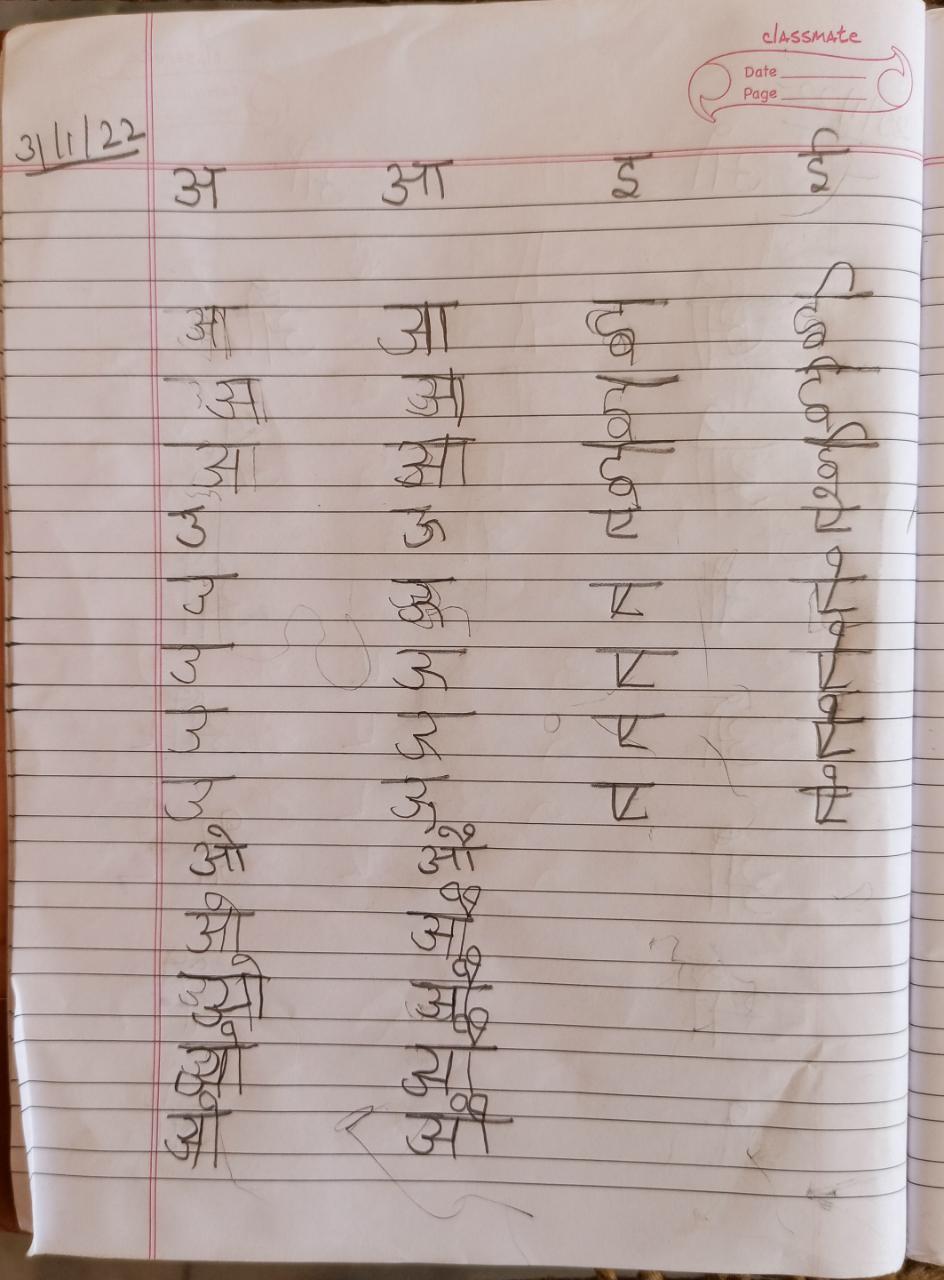 classmate
Date
Page
31/1/22
अ आ इ ई
अ आ इ ई
अ आ इ ई
अ आ इ ई
उ ऊ ए ऐ
उ ऊ ए ऐ
उ ऊ ए ऐ
उ ऊ ए ऐ
उ ऊ ए ऐ
ओ औ
ओ औ
ओ औ
ओ औ
ओ औ